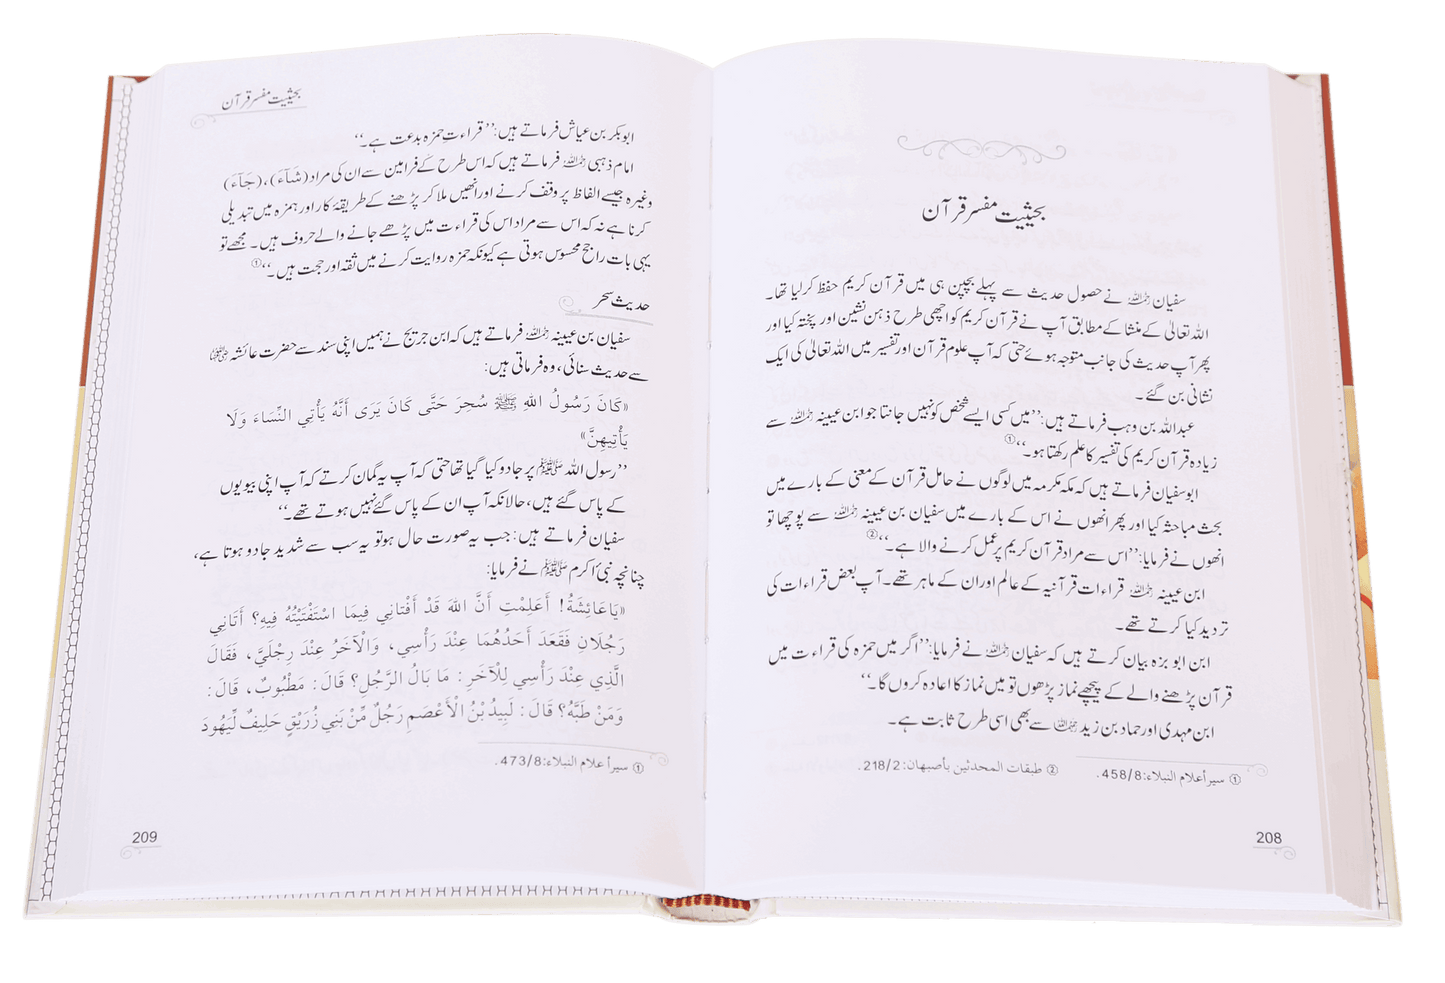 بحیثیت مفسر قرآن
سفیان رحمہ اللہ نے حصول حدیث سے پہلے بچپن ہی میں قرآن کریم حفظ کرلیا تھا۔
اللہ تعالیٰ کے منشا کے مطابق آپ نے قرآن کریم کو اچھی طرح ذہن نشین اور پختہ کیا اور
پھر آپ حدیث کی جانب متوجہ ہوئے حتی کہ آپ علوم قرآن اور تفسیر میں اللہ تعالیٰ کی ایک
نشانی بن گئے۔
عبداللہ بن وہب فرماتے ہیں: ’’میں کسی ایسے شخص کو نہیں جانتا جو ابن عیینہ رحمہ اللہ سے
زیادہ قرآن کریم کی تفسیر کا علم رکھتا ہو۔‘‘①
ابوسفیان فرماتے ہیں کہ مکہ مکرمہ میں لوگوں نے حامل قرآن کے معنی کے بارے میں
بحث مباحثہ کیا اور پھر انھوں نے اس کے بارے میں سفیان بن عیینہ رحمہ اللہ سے پوچھا تو
انھوں نے فرمایا: ’’اس سے مراد قرآن کریم پر عمل کرنے والا ہے۔‘‘②
ابن عیینہ رحمہ اللہ قراءات قرآنیہ کے عالم اور ان کے ماہر تھے۔ آپ بعض قراءات کی
تردید کیا کرتے تھے۔
ابن ابو بزہ بیان کرتے ہیں کہ سفیان رحمہ اللہ نے فرمایا: ’’اگر میں حمزہ کی قراءت میں
قرآن پڑھنے والے کے پیچھے نماز پڑھوں تو میں نماز کا اعادہ کروں گا۔‘‘
ابن مہدی اور حماد بن زید رحمہما اللہ سے بھی اسی طرح ثابت ہے۔
① سیر أعلام النبلاء: 458/8. ② طبقات المحدثین بأصبهان: 218/2.
208
بحیثیت مفسر قرآن
ابوبکر بن عیاش فرماتے ہیں: ’’قراءتِ حمزہ بدعت ہے۔‘‘
امام ذہبی رحمہ اللہ فرماتے ہیں کہ اس طرح کے فرامین سے ان کی مراد (شَآءَ)، (جَآءَ)
وغیرہ جیسے الفاظ پر وقف کرنے اور انھیں ملا کر پڑھنے کے طریقۂ کار اور ہمزہ میں تبدیلی
کرنا ہے نہ کہ اس سے مراد اس کی قراءت میں پڑھے جانے والے حروف ہیں۔ مجھے تو
یہی بات راجح محسوس ہوتی ہے کیونکہ حمزہ روایت کرنے میں ثقہ اور حجت ہیں۔‘‘①
حدیث سحر
سفیان بن عیینہ رحمہ اللہ فرماتے ہیں کہ ابن جریج نے ہمیں اپنی سند سے حضرت عائشہ رضی اللہ عنہا
سے حدیث سنائی، وہ فرماتی ہیں:
«كَانَ رَسُولُ اللهِ ﷺ سُحِرَ حَتَّى كَانَ يَرَى أَنَّهُ يَأْتِي النِّسَاءَ وَلَا
يَأْتِيهِنَّ»
’’رسول اللہ ﷺ پر جادو کیا گیا تھا حتی کہ آپ یہ گمان کرتے کہ آپ اپنی بیویوں
کے پاس گئے ہیں، حالانکہ آپ ان کے پاس گئے نہیں ہوتے تھے۔‘‘
سفیان فرماتے ہیں: جب یہ صورت حال ہو تو یہ سب سے شدید جادو ہوتا ہے،
چنانچہ نبیٔ اکرم ﷺ نے فرمایا:
«يَاعَائِشَةُ! أَعَلِمْتِ أَنَّ اللهَ قَدْ أَفْتَانِي فِيمَا اسْتَفْتَيْتُهُ فِيهِ؟ أَتَانِي
رَجُلَانِ فَقَعَدَ أَحَدُهُمَا عِنْدَ رَأْسِي، وَالْآخَرُ عِنْدَ رِجْلَيَّ، فَقَالَ
الَّذِي عِنْدَ رَأْسِي لِلْآخَرِ: مَا بَالُ الرَّجُلِ؟ قَالَ: مَطْبُوبٌ، قَالَ:
وَمَنْ طَبَّهُ؟ قَالَ: لَبِيدُ بْنُ الْأَعْصَمِ رَجُلٌ مِّنْ بَنِي زُرَيْقٍ حَلِيفٌ لِّيَهُودَ
① سیر أعلام النبلاء: 473/8.
209